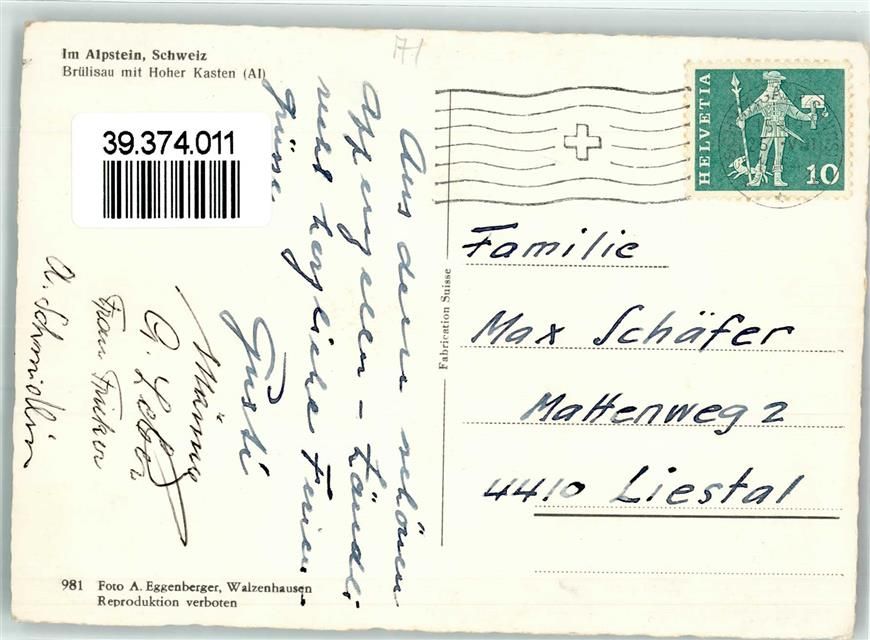 Im Alpstein, Schweiz
Brülisau mit Hoher Kasten (AI)
71
39.374.011
HELVETIA
10
Aus dem schönen
Appenzeller-Ländli
recht herzliche Ferien-
grüsse
Gusti
A. Schmidlin
Frau
G.
Fabrication Suisse
Familie
Max Schäfer
Mattenweg 2
4410 Liestal
981 Foto A. Eggenberger, Walzenhausen
Reproduktion verboten